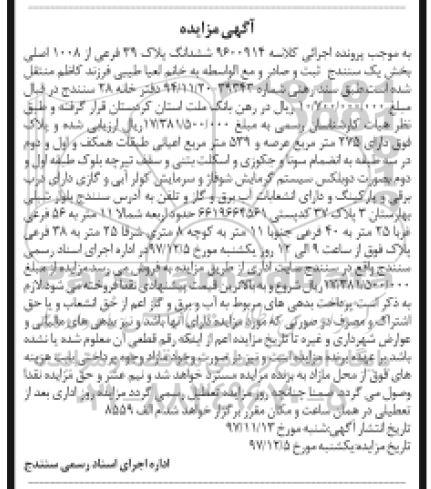 آگهی مزایده
به موجب پرونده اجرائی کلاسه ۹۶۰۰۹۱۴ ششدانگ پلاک ۳۹ فرعی از ۱۰۰۸ اصلی
بخش یک سنندج ثبت و صادر و مع الواسطه به خانم لعیا طیبی فرزند کاظم منتقل
شده است طبق سند رهنی شماره ۳۹۳۴۳-۹۴/۱۱/۲۰ دفتر خانه ۲۸ سنندج در قبال
مبلغ ۱۰/۷۰۰/۰۰۰/۰۰۰ ریال در رهن بانک ملت استان کردستان قرار گرفته و طبق
نظر هیات کارشناسان رسمی به مبلغ ۱۷/۳۸۱/۵۰۰/۰۰۰ ریال ارزیابی شده و پلاک
فوق دارای ۲۷۵ متر مربع عرصه و ۵۳۹ متر مربع اعیانی طبقات همکف و اول و دوم
در سه طبقه به انضمام سونا و جکوزی و اسکلت بتنی و سقف تیرچه بلوک طبقه اول و
دوم بصورت دوبلکس سیستم گرمایش شوفاژ و سرمایش کولر آبی و گازی دارای درب
برقی و پارکینگ و دارای انشعابات آب برق و گاز و تلفن به آدرس سنندج بلوار شبلی
بهارستان ۳ پلاک ۳۷ کدپستی ۶۶۱۹۶۶۲۵۶۱ حدود اربعه شمالا ۱۱ متر به ۵۶ فرعی
غربا ۲۵ متر به ۴۰ فرعی جنوبا ۱۱ متر به کوچه ۸ متری شرقا ۲۵ متر به ۳۸ فرعی
پلاک فوق از ساعت ۹ الی ۱۲ روز یکشنبه مورخ ۹۷/۱۲/۵ در اداره اجرای اسناد رسمی
سنندج واقع در سنندج سایت اداری از طریق مزایده به فروش می رسد مزایده از مبلغ
۱۷/۳۸۱/۵۰۰/۰۰۰ ریال شروع و به بالاترین قیمت پیشنهادی نقدا فروخته می شود لازم
به ذکر است پرداخت بدهی های مربوط به آب و برق و گاز اعم از حق انشعاب و یا حق
اشتراک و مصرف در صورتی که مورد مزایده دارای آنها باشد و نیز بدهی های مالیاتی و
عوارض شهرداری و غیره تا تاریخ مزایده اعم از اینکه رقم قطعی آن معلوم شده یا نشده
باشد بر عهده برنده مزایده است و نیز در صورت وجود مازاد وجوه پرداختی بابت هزینه
های فوق از محل مازاد به برنده مزایده مسترد خواهد شد و نیم عشر و حق مزایده نقدا
وصول می گردد ضمنا چنانچه روز مزایده تعطیل رسمی گردد مزایده روز اداری بعد از
تعطیلی در همان ساعت و مکان مقرر برگزار خواهد شد م الف ۸۵۵۹
تاریخ انتشار آگهی:شنبه مورخ ۹۷/۱۱/۱۳
تاریخ مزایده:یکشنبه مورخ ۹۷/۱۲/۵
اداره اجرای اسناد رسمی سنندج